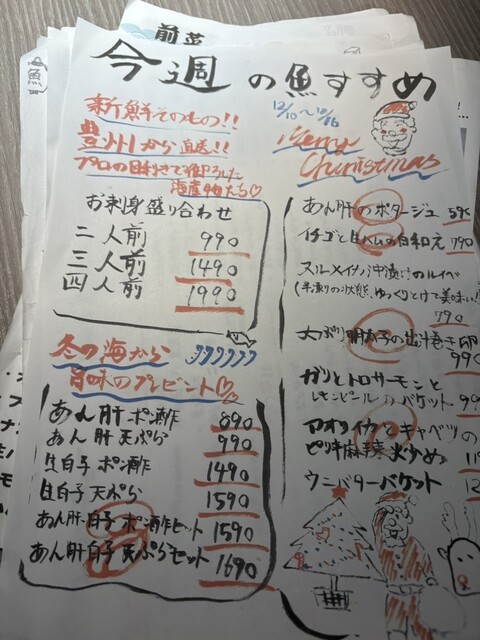 前菜
魚
今週の魚すすめ
新鮮そのもの!!
豊州から直送!!
プロの目利きで仕入れた
海産物たち♡
12/10〜12/16
Merry
Chiristmas
お刺身盛り合わせ
二人前 990
三人前 1490
四人前 1990
冬の海から
旨味のプレゼント♡
あん肝ポン酢 890
あん肝天ぷら 990
生白子ポン酢 1490
生白子天ぷら 1590
あん肝・白子ポン酢セット 1590
あん肝白子天ぷらセット 1690
あん肝のポタージュ 590
イチゴと生ハムの白和え 790
スルメイカ沖漬けのルイベ
(半凍りの状態、ゆっくりとけて美味い!!
790
大ぶり明太子の出汁巻き卵
990
ガリとトロサーモンと
レモンピールのバケット 99
アオリイカとキャベツの
ピリ辛麻辣火炒め 11
ウニバターバケット 12